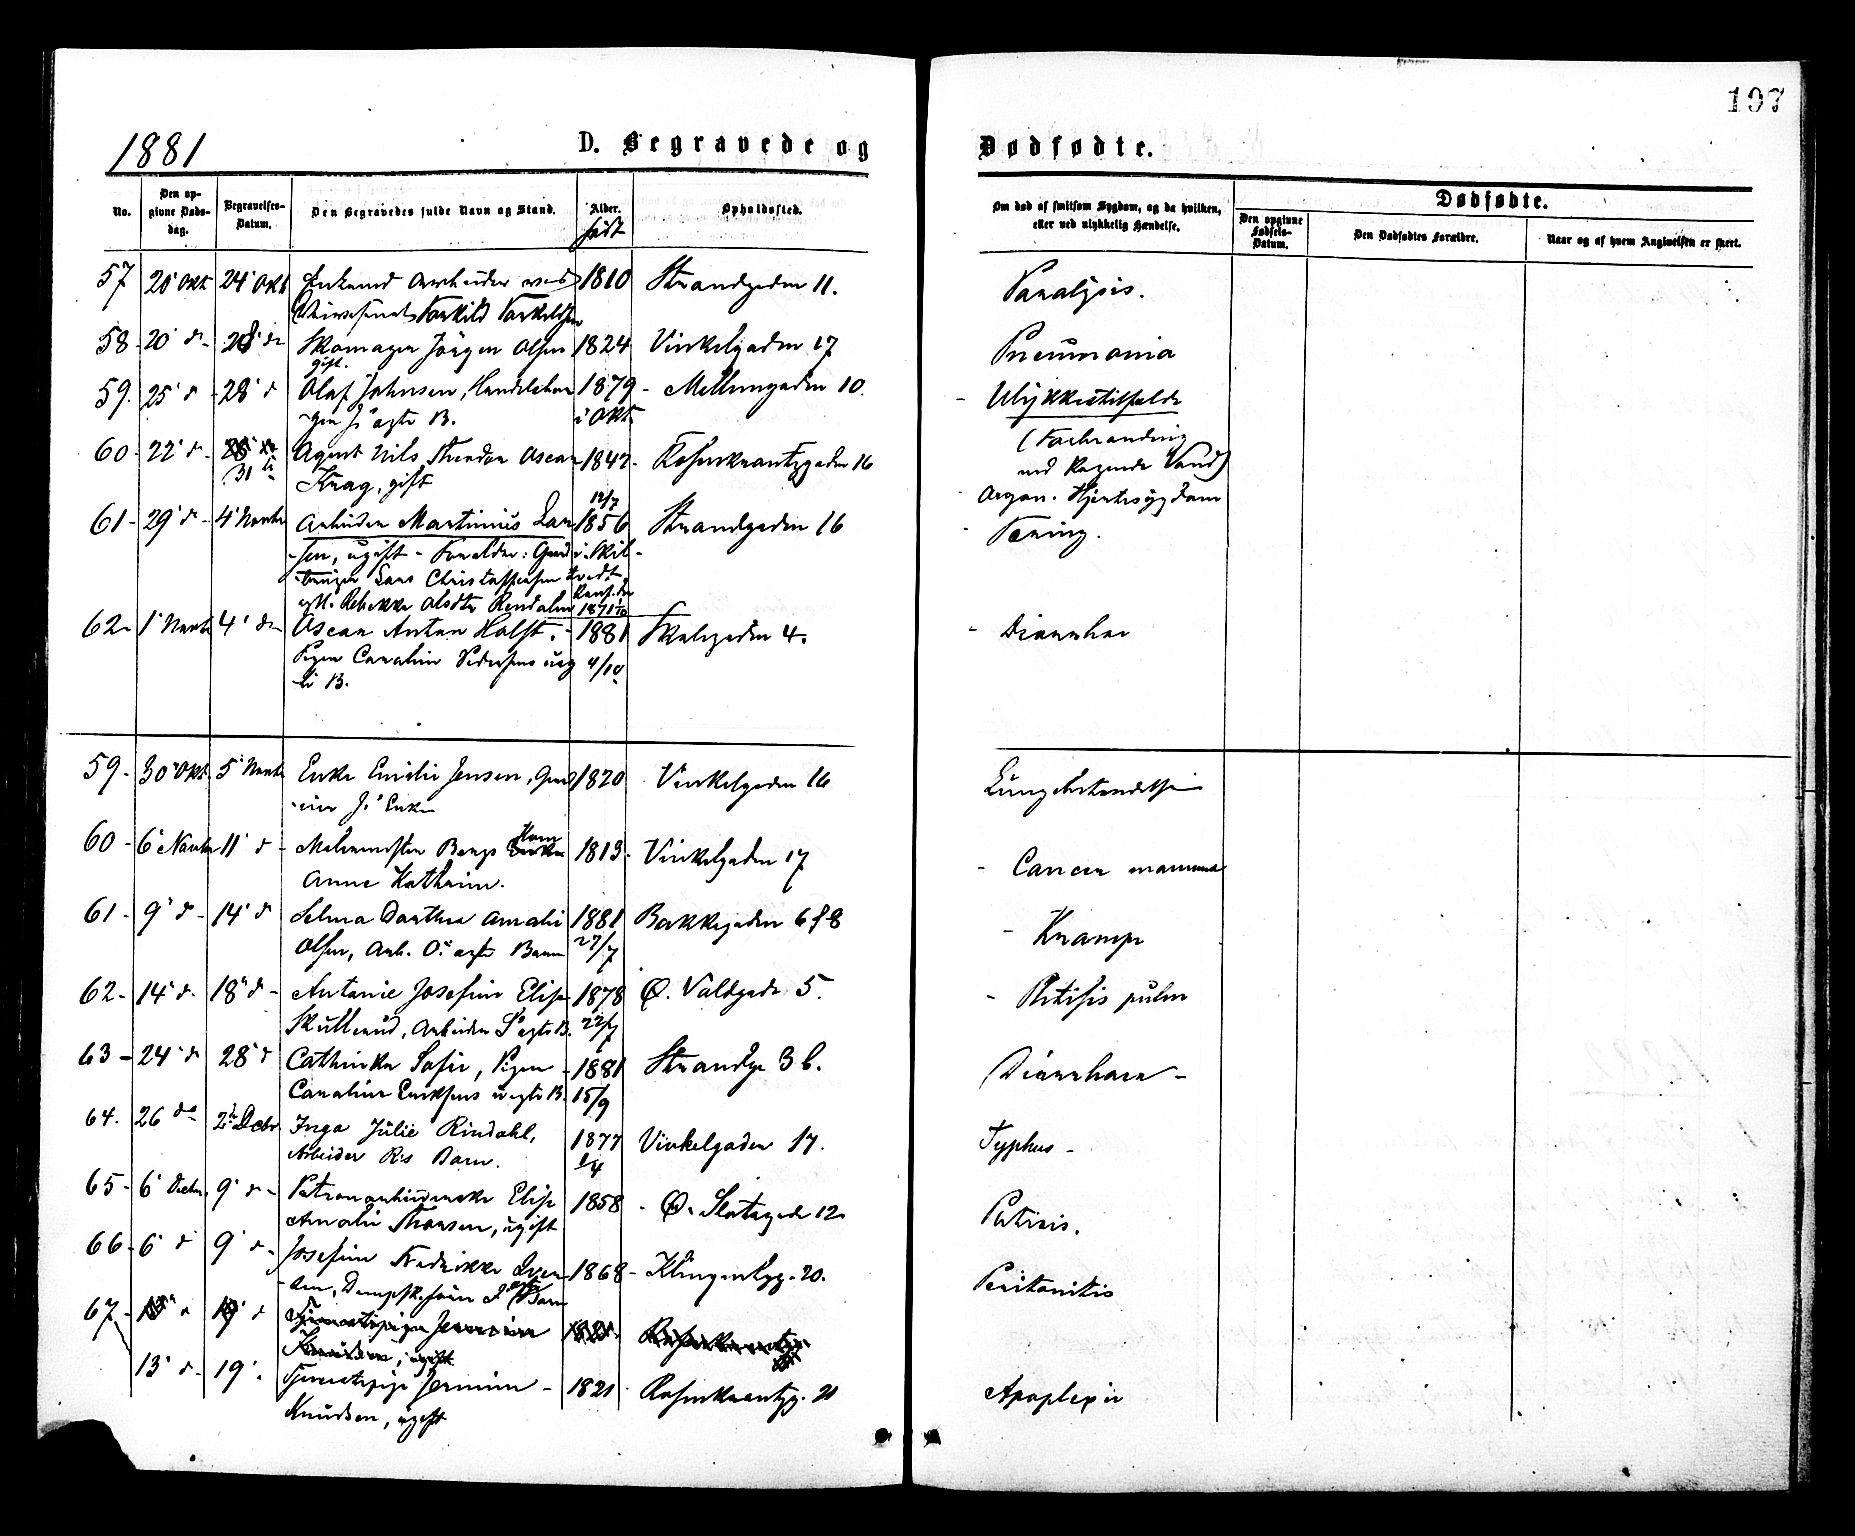 197
1881
D. Begravede og Dødfødte.
No.
Den opgivne Døds-dag.
Begravelses-Datum.
Den Begravedes fulde Navn og Stand.
Alder.
født
Opholdssted.
Om død af smitsom Sygdom, og da hvilken, eller ved ulykkelig Hændelse.
Dødfødte.
Den opgivne Fødsels-Datum.
Den Dødfødtes Forældre.
Naar og af hvem Angivelsen er skeet.
57 20' Okt 24' Okt Enkemd Arbeider ved 1810 Strandgaden 11. Paralysis.
Torkild Torkeldsen
58 - 20' d - Skomager Jørgen Olsen 1824 Vinkelgaden 17 Pneumonia
gift.
59. 25' d - 28' d Olaf Johnsen, Handelskar 1879 - Mellumgaden 10. - Ulykkestilfælde
J's ægte B. i Okt. (Forbrænding
60 - 22' d - 31te Agent Nils Theodor Oscar 1842 - Rosenkrantzgaden 16 med kogende Vand)
Krag, gift - Organ. Hjertesygdom
61 - 29' d - 4' Novbr Arbeider Martinius Lar 1856 12/7 Strandgaden 16 - Tæring.
sen, ugift - Forældre: Gaard i Skil-
bruger Lars Christophersen tvedt
og H. Rebekka Olsdtr Rendalen Konf. der 1871 1/10
62 - 1' Novbr 4' d - Oscar Anton Holst. - 1881 Skolegaden 4. - Diarrhoe
Pigen Caroline Pedersens uæg 4/10
te B.
59 - 30' Okt. 5' Novbr Enke Emilie Jensen, 1820 Vinkelgaden 16 Lungebetændelse
J's Enke
60 - 6' Novbr 11' d - Malermester Bergs Kone 1813 - Vinkelgaden 17 - Cancer mammæ
Anne Kathrine.
61 - 9' d - 14' d Selma Dorthea Amalie 1881 Bakkegaden 6 & 8 - Krampe
Olsen, Arb. O's ægte Barn 27/7
62 - 14' d - 18' d - Antonie Josefine Elise 1878 Ø. Voldgade 5. - Phtisis pulm
Skullerud, Arbeider S's ægte B. 22/7
63 - 24' d 28' d Cathinka Sofie, Pigen - 1881 Strandg. 3 b. Diarrhoea -
Caroline Eriksens uægte B. 15/9
64. 26 do 2' Decbr Inga Julie Rindahl, 1877 Vinkelgaden 17. Typhus -
Arbeider R's Barn. 1/4
65 - 6' Decbr. 9' d - Patronarbeiderske Elise 1858 - Ø. Slotsgade 12 Phtisis.
Amalie Thorsen, ugift
66 - 6' d 9' d - Josefine Fredrikke Sven 1868 - Klingenbg. 20. Peritonitis
67 - Tjenestepige Jermine
Knudsen, ugift
13' d - 19' - Tjenestepige Jermine - 1821 - Rosenkrantzg. 21 Apoplexia
Knudsen, ugift